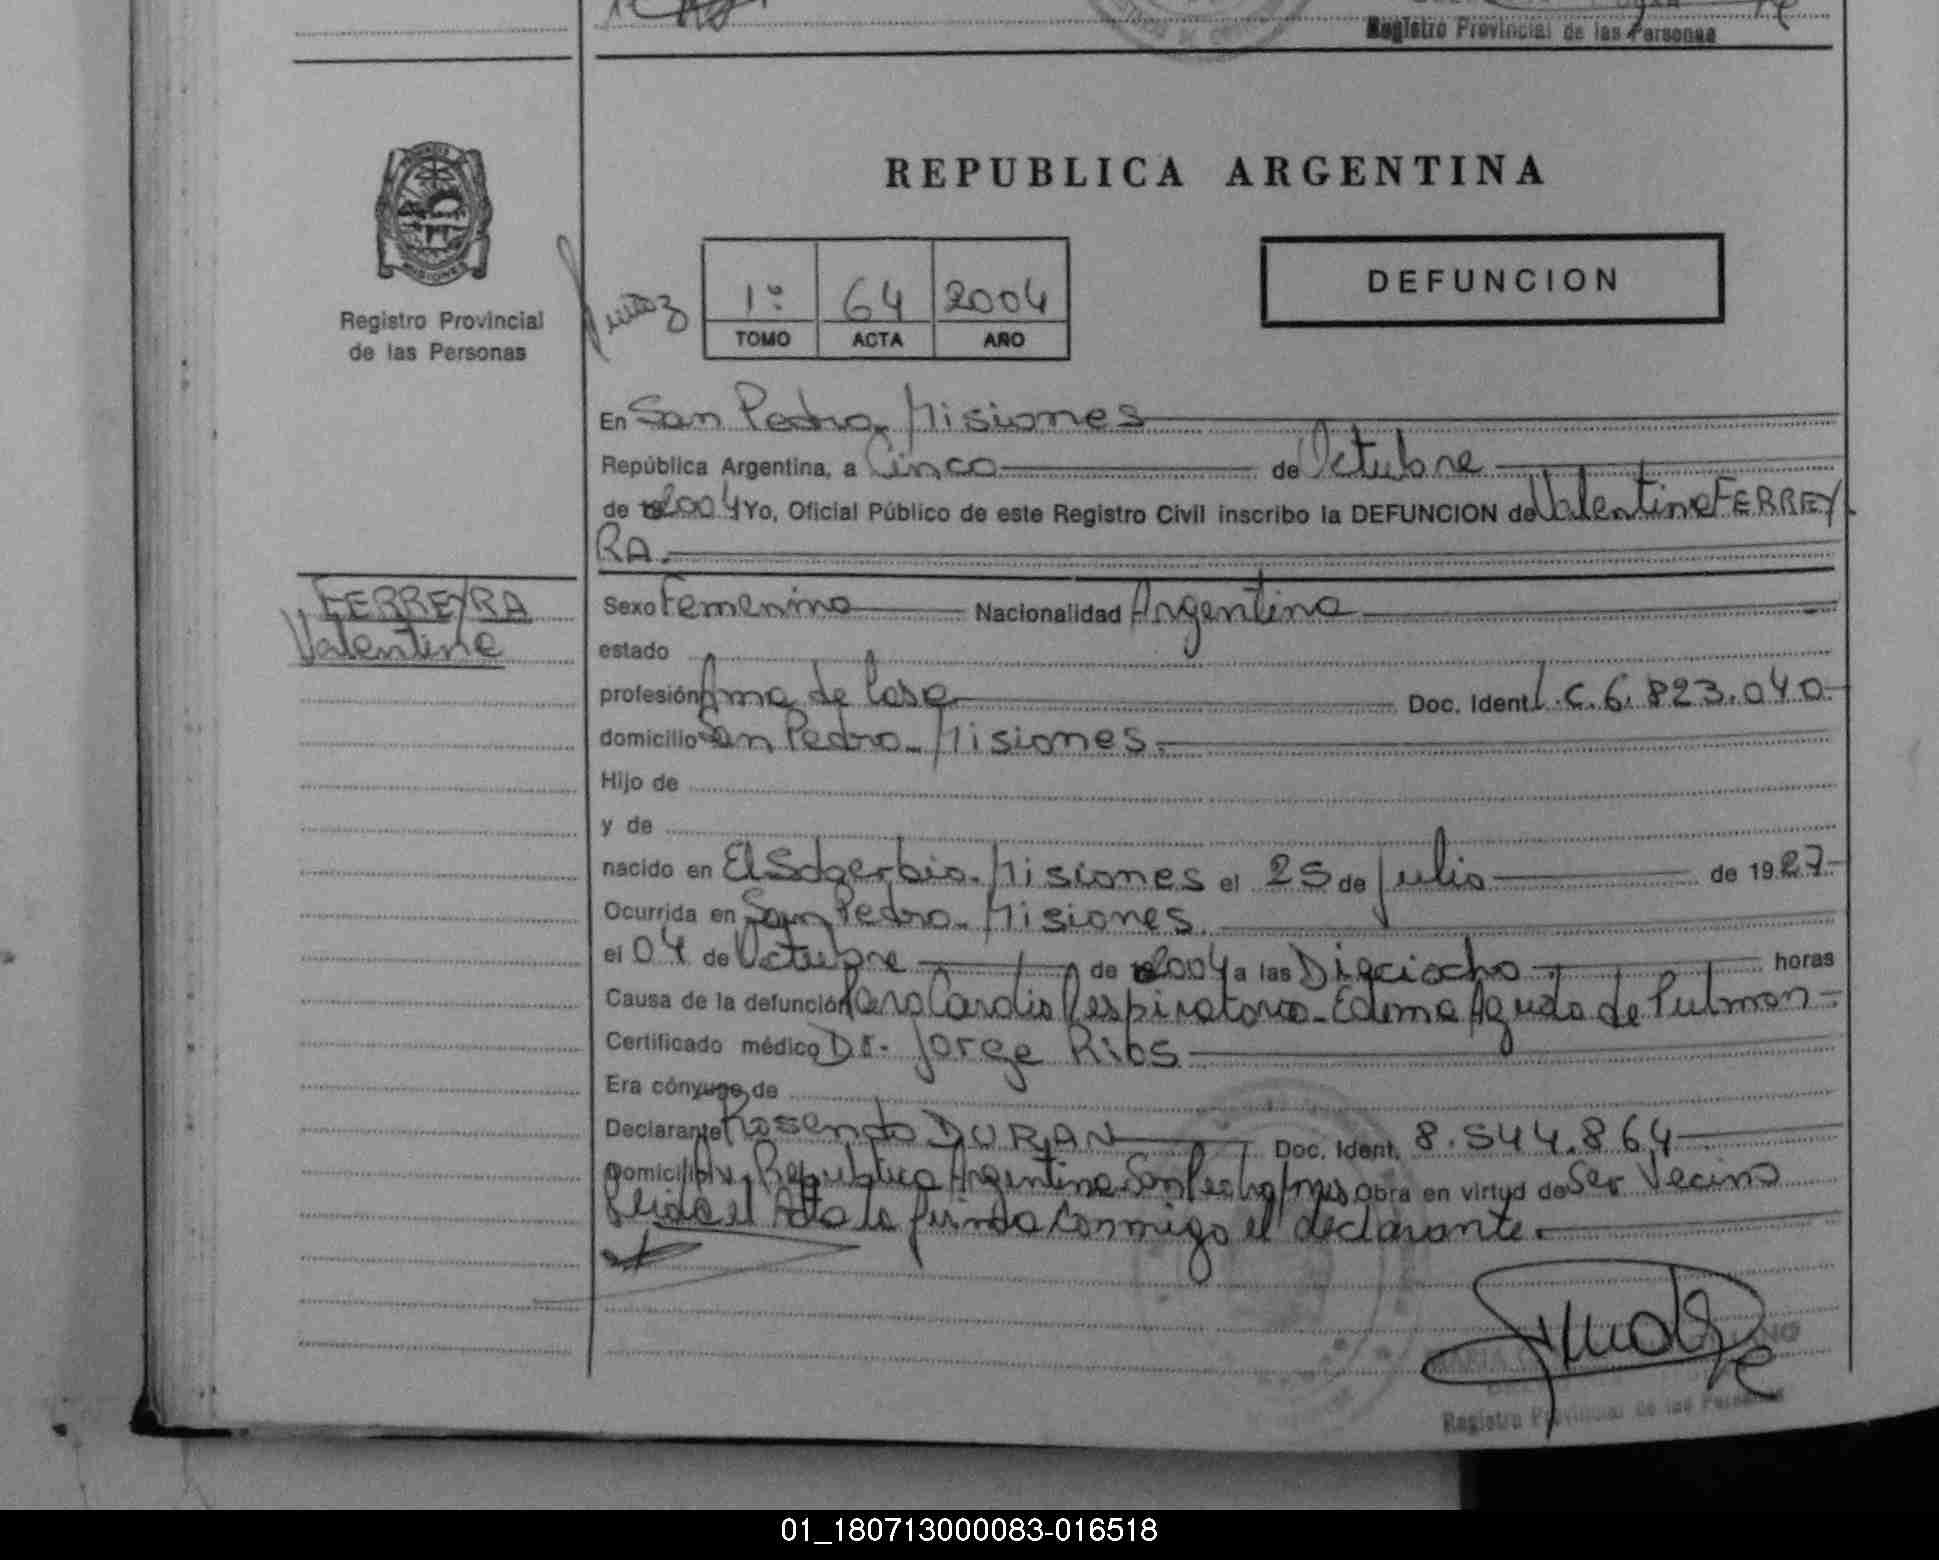 Registro Provincial de las Personas
REPUBLICA ARGENTINA
MISIONES
Registro Provincial
de las Personas
1º 64 2004
TOMO ACTA AÑO
DEFUNCION
En San Pedro. Misiones
República Argentina, a Cinco de Octubre
de 2004 Yo, Oficial Público de este Registro Civil inscribo la DEFUNCION de Valentina FERREY
RA.
FERREYRA
Valentina
Sexo Femenino Nacionalidad Argentina
estado
profesión Ama de Casa Doc. Ident. L.C. 6.823.040
domicilio San Pedro. Misiones.
Hijo de
y de
nacido en El Soberbio. Misiones el 25 de Julio de 1927
Ocurrida en San Pedro. Misiones.
el 04 de Octubre de 2004 a las Dieciocho horas
Causa de la defunción Paro Cardio Respiratorio. Edema Agudo de Pulmon
Certificado médico Dr. Jorge Rios
Era cónyuge de
Declarante Rosendo DURAN Doc. Ident. 8.544.864
Domicilio Av. República Argentina San Pedro Mnes Obra en virtud de Ser Vecino
Leida el Acta la firma conmigo el declarante.
Registro Provincial de las Personas
01_180713000083-016518